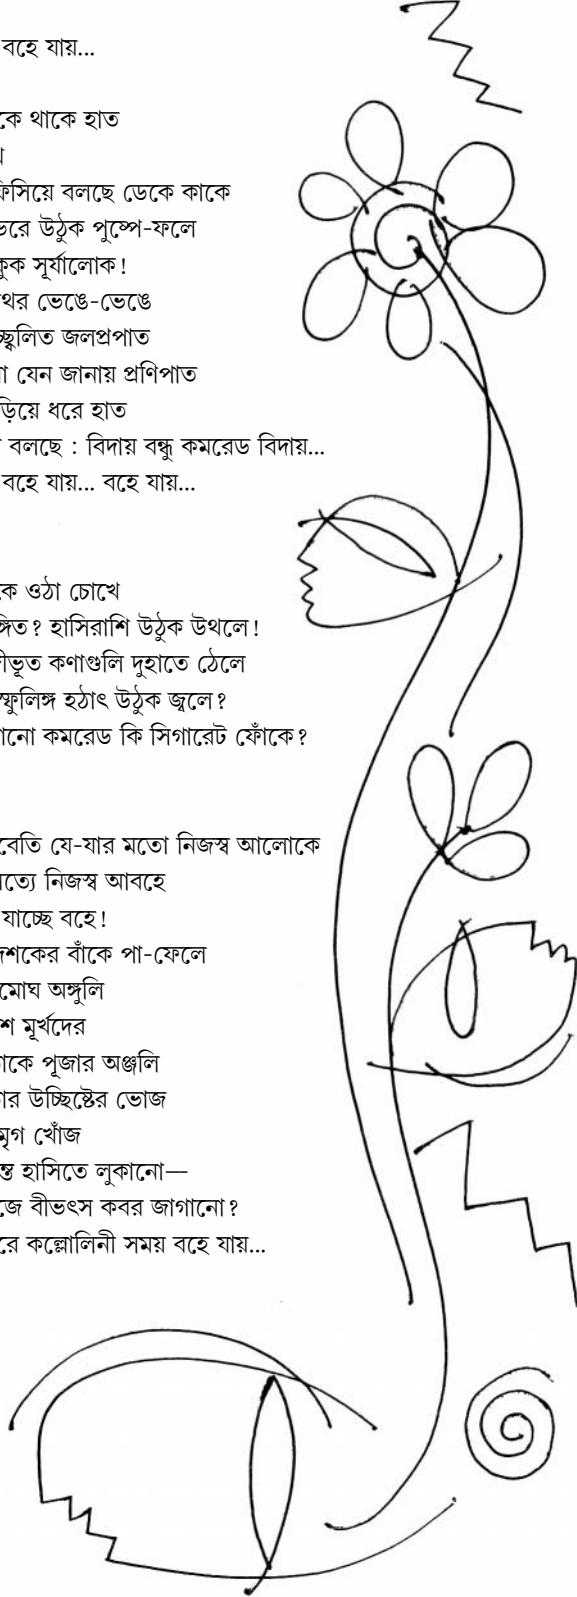 বহে যায়...
কে থাকে হাত
ফিসিয়ে বলছে ডেকে কাকে
ভরে উঠুক পুষ্পে-ফলে
কুক সূর্যালোক!
থর ভেঙে-ভেঙে
চ্ছ্বলিত জলপ্রপাত
া যেন জানায় প্রণিপাত
ড়িয়ে ধরে হাত
বলছে : বিদায় বন্ধু কমরেড বিদায়...
বহে যায়... বহে যায়...
কে ওঠা চোখে
ঙ্গিত? হাসিরাশি উঠুক উথলে!
ীভূত কণাগুলি দুহাতে ঠেলে
স্ফুলিঙ্গ হঠাৎ উঠুক জ্বলে?
ানো কমরেড কি সিগারেট ফোঁকে?
বেতি যে-যার মতো নিজস্ব আলোকে
ত্যে নিজস্ব আবহে
যাচ্ছে বহে!
দশকের বাঁকে পা-ফেলে
মোঘ অঙ্গুলি
শ মূর্খদের
াকে পূজার অঞ্জলি
ার উচ্ছিষ্টের ভোজ
মৃগ খোঁজ
ন্ত হাসিতে লুকানো—
জে বীভৎস কবর জাগানো?
রে কল্লোলিনী সময় বহে যায়...